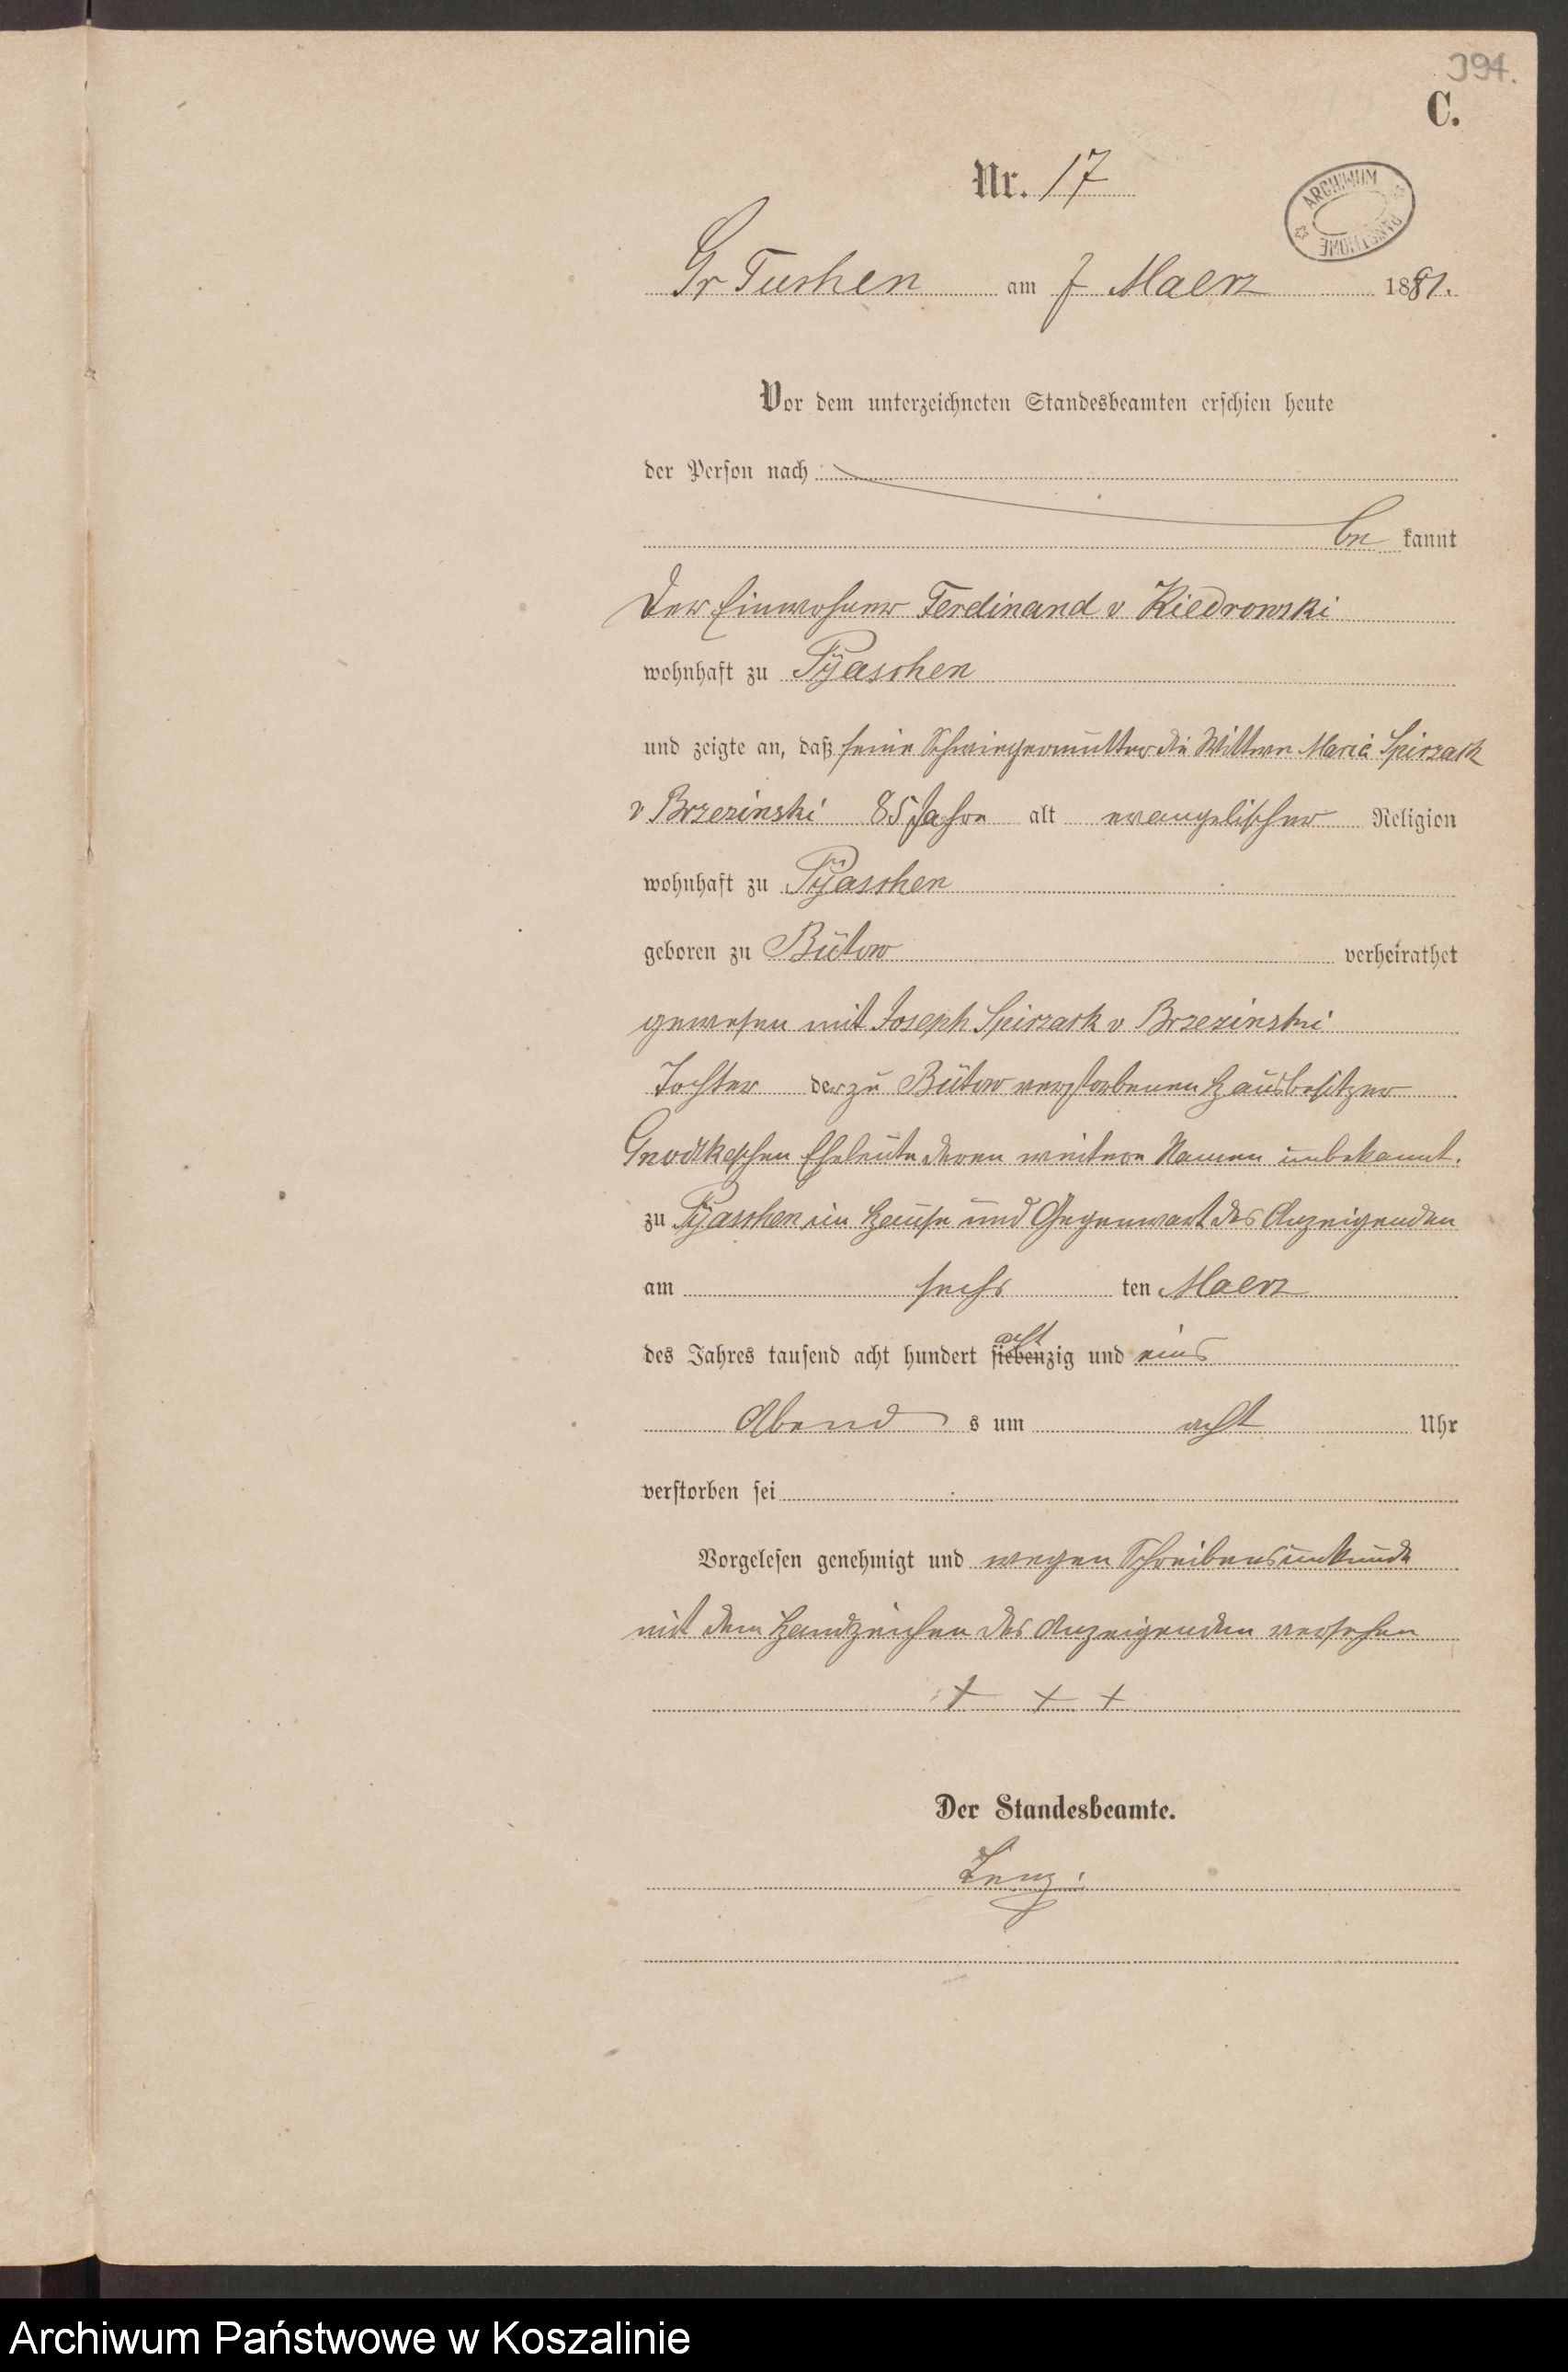 394.
C.
Nr. 17
ARCHIWUM PAŃSTWOWE
Gr Tuchen am 7 Maerz 1881.
Vor dem unterzeichneten Standesbeamten erschien heute
der Person nach
be kannt
Der Einwohner Ferdinand v Kiedrowski
wohnhaft zu Pÿaschen
und zeigte an, daß seine Schwiegermutter die Wittwe Maria Spiczack
v Brzezinski 85 Jahre alt evangelischer Religion
wohnhaft zu Pÿaschen
geboren zu Bütow verheirathet
gewesen mit Joseph Spiczack v Brzezinski
Tochter der zu Bütow verstorbenen Hausbesitzer
Eheleute deren weitere Namen unbekannt.
zu Pÿaschen im Hause und Gegenwart des Anzeigenden
am sechs ten Maerz
des Jahres tausend acht hundert siebenzig acht und eins
Abend s um acht Uhr
verstorben sei
Vorgelesen genehmigt und wegen Schreibensunkunde
mit dem Handzeichen des Anzeigenden versehen
+ + +
Der Standesbeamte.
Lenz.
Archiwum Państwowe w Koszalinie